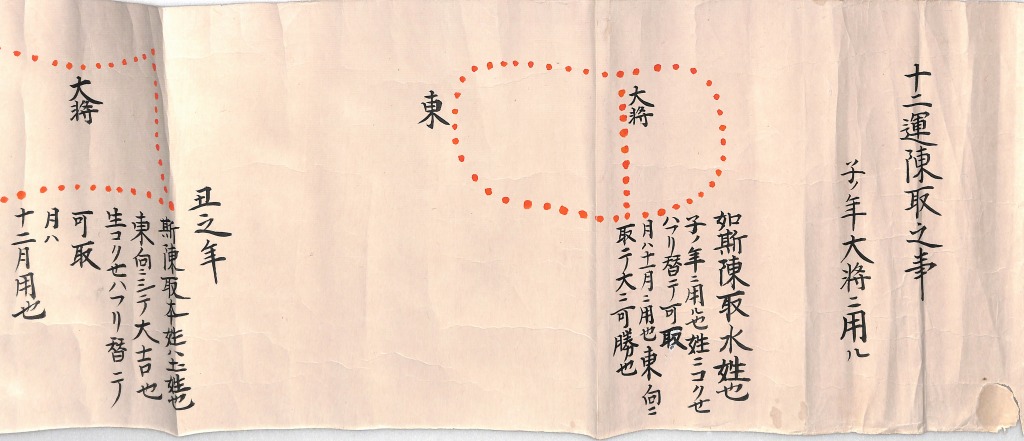 十二運陳取之事
子ノ年大将ニ用ル
大将
如斯陳取水姓也
子ノ年ニ用ル也姓ニコクせ
ハフリ替テ可取
月ハ十一月ニ用也東向ニ
取テ大ニ可勝也
東
丑之年
斯陳取本姓ハ土姓也
東向ニシテ大吉也
生コクせハフリ替テ
可取
月ハ
十二月用也
大将